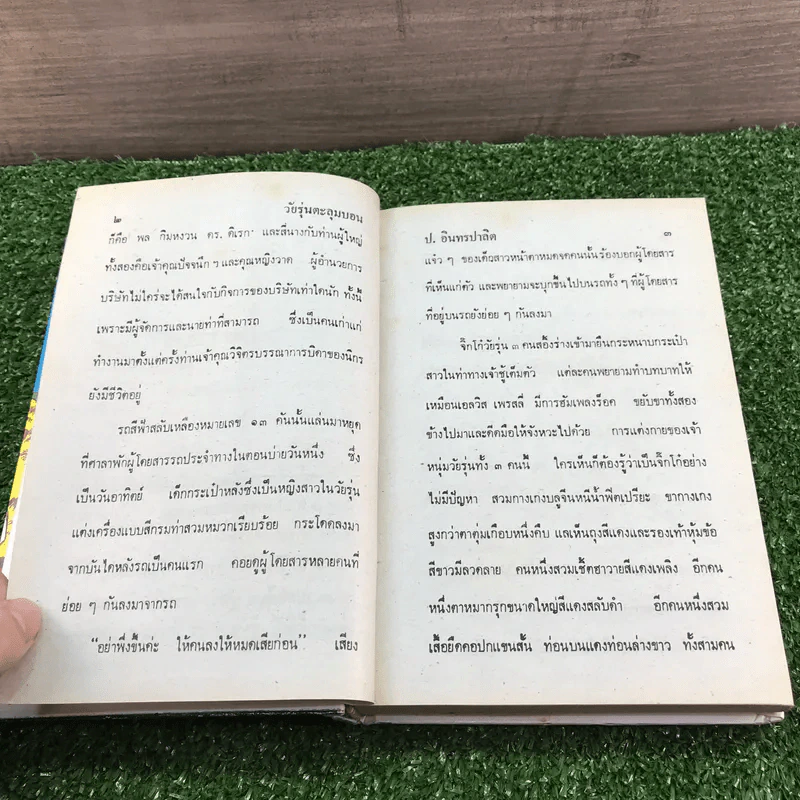 ๒ วัยรุ่นตะลุมบอน
ก็คือ พล กิมหงวน ดร. ดิเรก และสี่นางกับท่านผู้ใหญ่
ทั้งสองคือเจ้าคุณปัจจนึก ฯ และคุณหญิงวาด ผู้อำนวยการ
บริษัทไม่ใคร่จะได้สนใจกับกิจการของบริษัทเท่าใดนัก ทั้งนี้
เพราะมีผู้จัดการและนายท่าที่สามารถ ซึ่งเป็นคนเก่าแก่
ทำงานมาตั้งแต่ครั้งท่านเจ้าคุณวิจิตรบรรณาการบิดาของนิกร
ยังมีชีวิตอยู่
รถสีฟ้าสลับเหลืองหมายเลข ๑๓ คันนั้นแล่นมาหยุด
ที่ศาลาพักผู้โดยสารรถประจำทางในตอนบ่ายวันหนึ่ง ซึ่ง
เป็นวันอาทิตย์ เด็กกระเป๋าหลังซึ่งเป็นหญิงสาวในวัยรุ่น
แต่งเครื่องแบบสีกรมท่าสวมหมวกเรียบร้อย กระโดดลงมา
จากบันไดหลังรถเป็นคนแรก คอยดูผู้โดยสารหลายคนที่
ย่อย ๆ กันลงมาจากรถ
“อย่าพึ่งขึ้นค่ะ ให้คนลงให้หมดเสียก่อน” เสียง
ป. อินทรปาลิต ๓
แจ๋ว ๆ ของเด็กสาวหน้าตาหมดจดคนนั้นร้องบอกผู้โดยสาร
ที่เห็นแก่ตัว และพยายามจะบุกขึ้นไปบนรถทั้ง ๆ ที่ผู้โดยสาร
ที่อยู่บนรถยังย่อย ๆ กันลงมา
จิ๊กโก๋วัยรุ่น ๓ คนสอึ้งร่างเข้ามายืนกระหนาบกระเป๋า
สาวในท่าทางเจ้าชู้เต็มตัว แต่ละคนพยายามทำบทบาทให้
เหมือนเอลวิส เพรสลี่ มีการฮัมเพลงร็อค ขยับขาทั้งสอง
ข้างไปมาและดีดมือให้จังหวะไปด้วย การแต่งกายของเจ้า
หนุ่มวัยรุ่นทั้ง ๓ คนนี้ ใครเห็นก็ต้องรู้ว่าเป็นจิ๊กโก๋อย่าง
ไม่มีปัญหา สวมกางเกงบลูจีนหนีน้ำฟิตเปรียะ ขากางเกง
สูงกว่าตาตุ่มเกือบหนึ่งคืบ แลเห็นถุงสีแดงและรองเท้าหุ้มข้อ
สีขาวมีลวดลาย คนหนึ่งสวมเชิ้ตฮาวายสีแดงเพลิง อีกคน
หนึ่งตาหมากรุกขนาดใหญ่สีแดงสลับดำ อีกคนหนึ่งสวม
เสื้อยืดคอปกแขนสั้น ท่อนบนแดงท่อนล่างขาว ทั้งสามคน